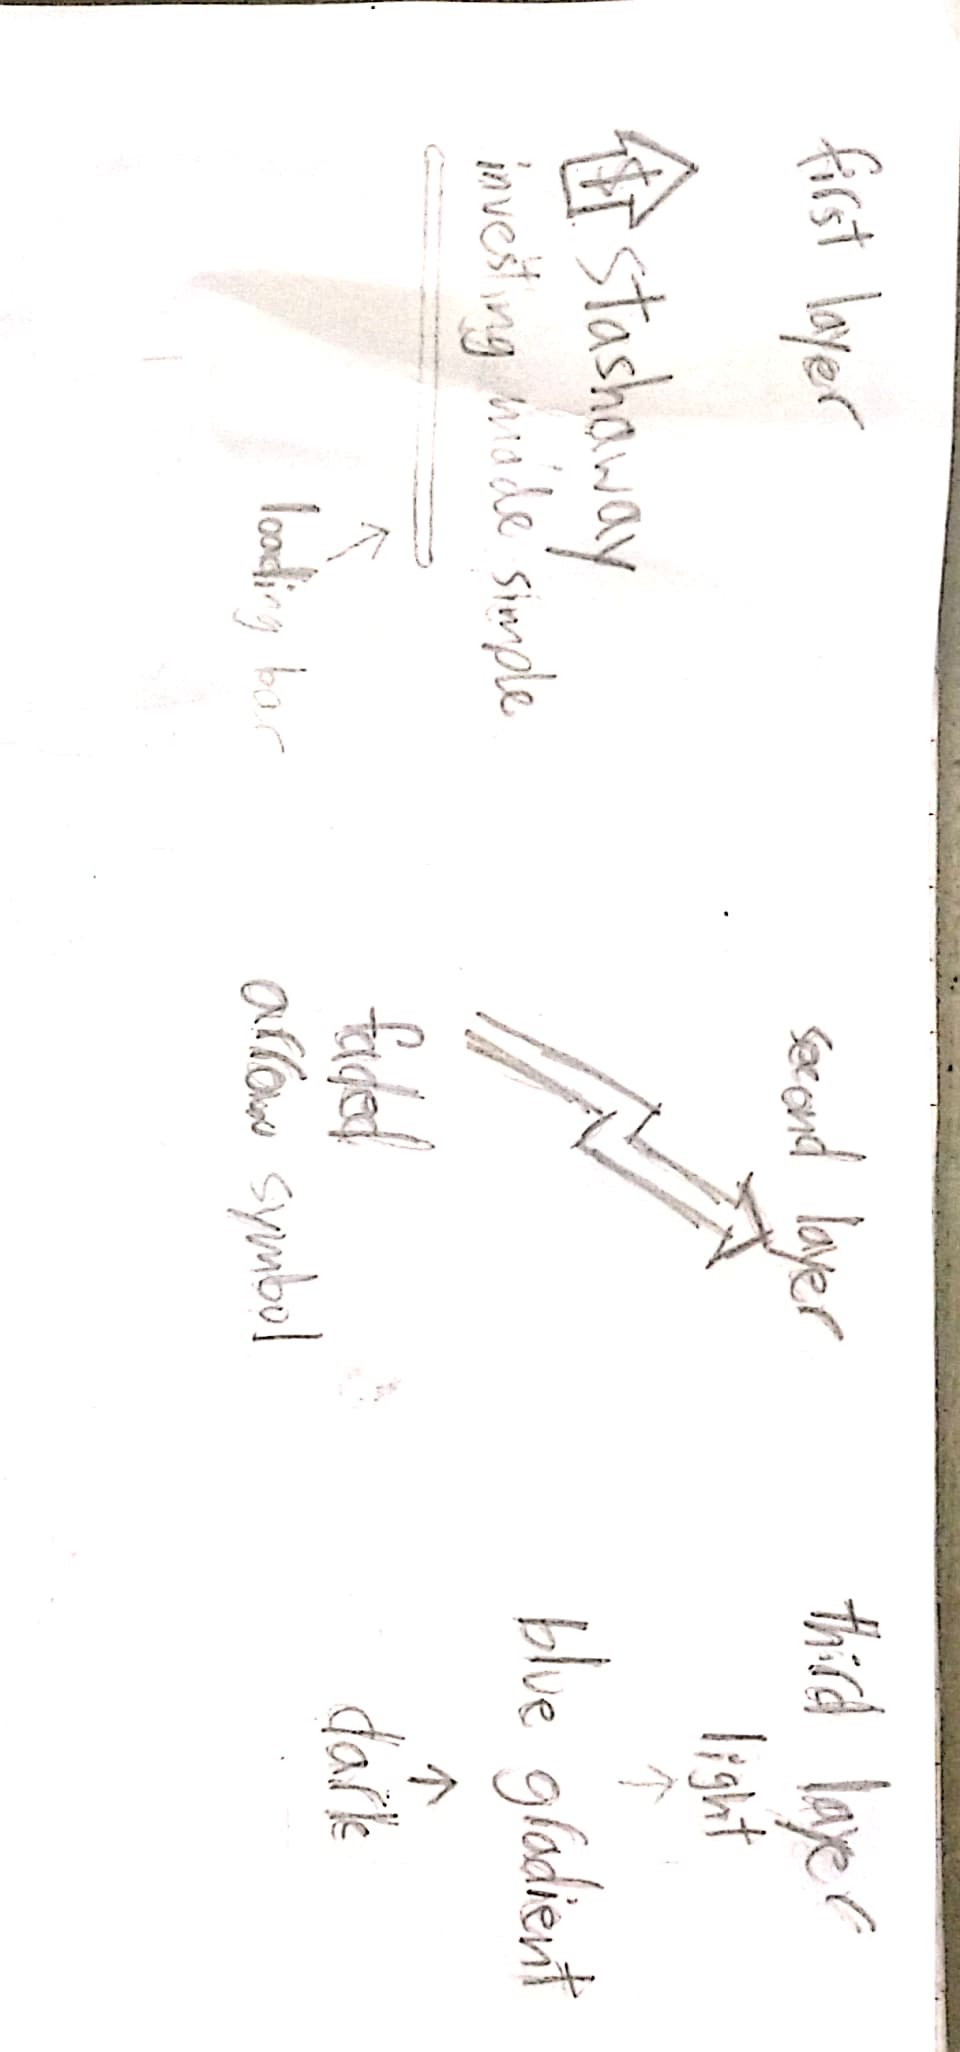 first layer
$ Stashaway
investing made simple
loading bar
second layer
faded
arrow symbol
third layer
light
blue gradient
dark